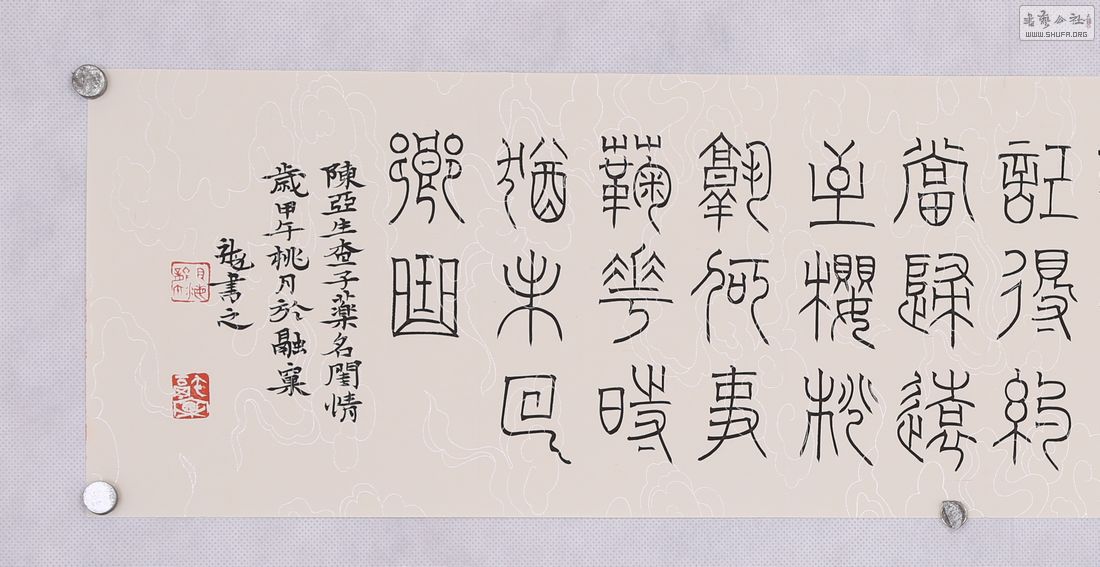 記得約
當歸遠
至櫻桃
孰何事
鞠華時
猶未回
鄉曲
陳亞生查子藥名閨情
歲甲午桃月於融窠
書之
書藝公社
WWW.SHUFA.ORG